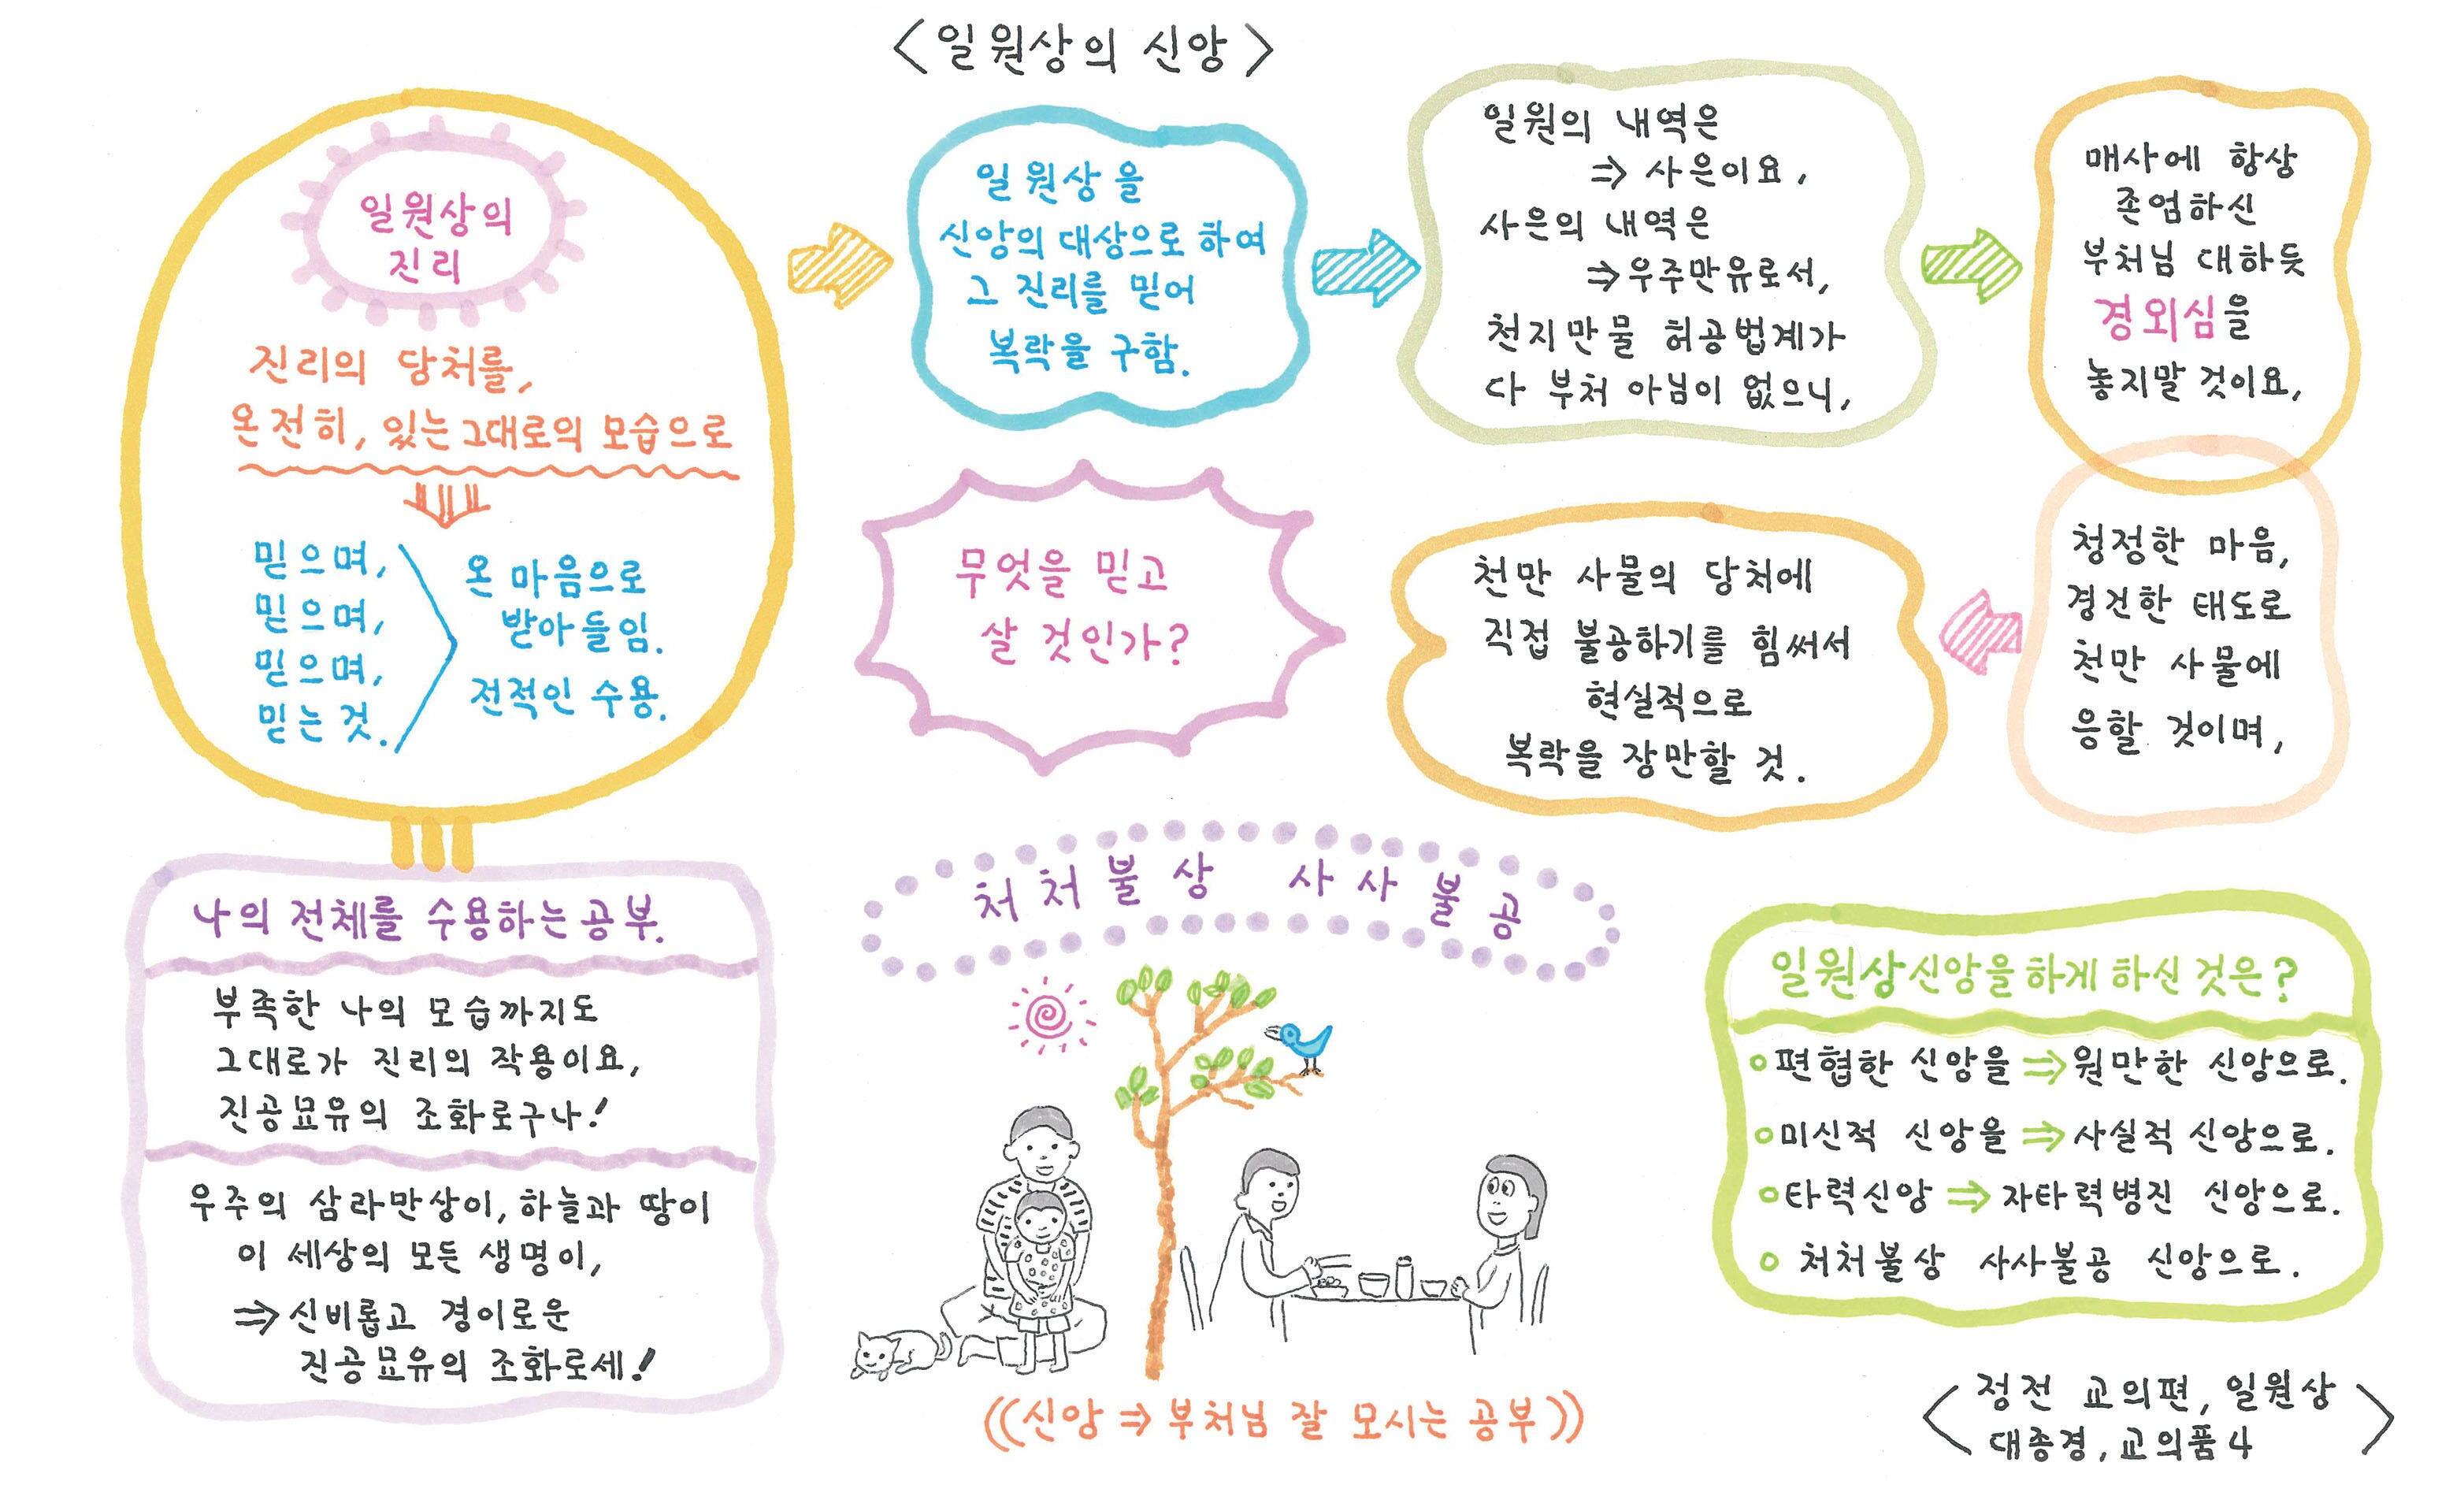 <일원상의 신앙>
일원상의
진리
진리의 당처를,
온전히, 있는 그대로의 모습으로
믿으며,
믿으며,
믿으며,
믿는 것.
온 마음으로
받아들임.
전적인 수용.
나의 전체를 수용하는 공부.
부족한 나의 모습까지도
그대로가 진리의 작용이요,
진공묘유의 조화로구나!
우주의 삼라만상이, 하늘과 땅이
이 세상의 모든 생명이,
⇒ 신비롭고 경이로운
진공묘유의 조화로세!
일원상을
신앙의 대상으로 하여
그 진리를 믿어
복락을 구함.
일원의 내역은
⇒ 사은이요,
사은의 내역은
⇒ 우주만유로서,
천지만물 허공법계가
다 부처 아님이 없으니,
매사에 항상
존엄하신
부처님 대하듯
경외심을
놓지말 것이요,
청정한 마음,
경건한 태도로
천만 사물에
응할 것이며,
천만 사물의 당처에
직접 불공하기를 힘써서
현실적으로
복락을 장만할 것.
무엇을 믿고
살 것인가?
처처불상 사사불공
((신앙 ⇒ 부처님 잘 모시는 공부))
일원상 신앙을 하게 하신 것은?
○ 편협한 신앙을 ⇒ 원만한 신앙으로.
○ 미신적 신앙을 ⇒ 사실적 신앙으로.
○ 타력신앙 ⇒ 자타력병진 신앙으로.
○ 처처불상 사사불공 신앙으로.
<정전 교의편, 일원상
대종경, 교의품 4>